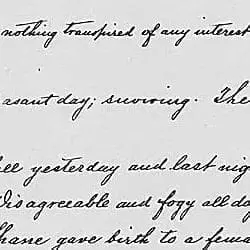 nothing transpired of any interest
asant day; snowing. The
yesterday and last nig
disagreeable and fogy all day
hane gave birth to a few